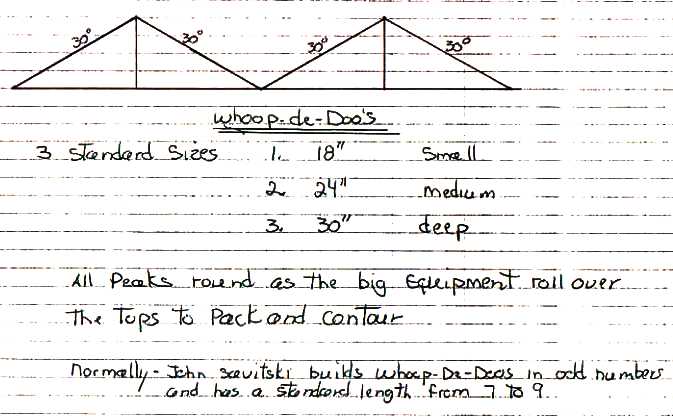 30° 30° 30° 30°
Whoop-de-Doo's
3 Standard Sizes 1. 18" Small
2. 24" medium
3. 30" deep
All Peaks round as the big Equipment roll over
the Tops to Pack and contour
Normally - John Savitski builds whoop-De-Doos in odd numbers
and has a standard length from 7 to 9.